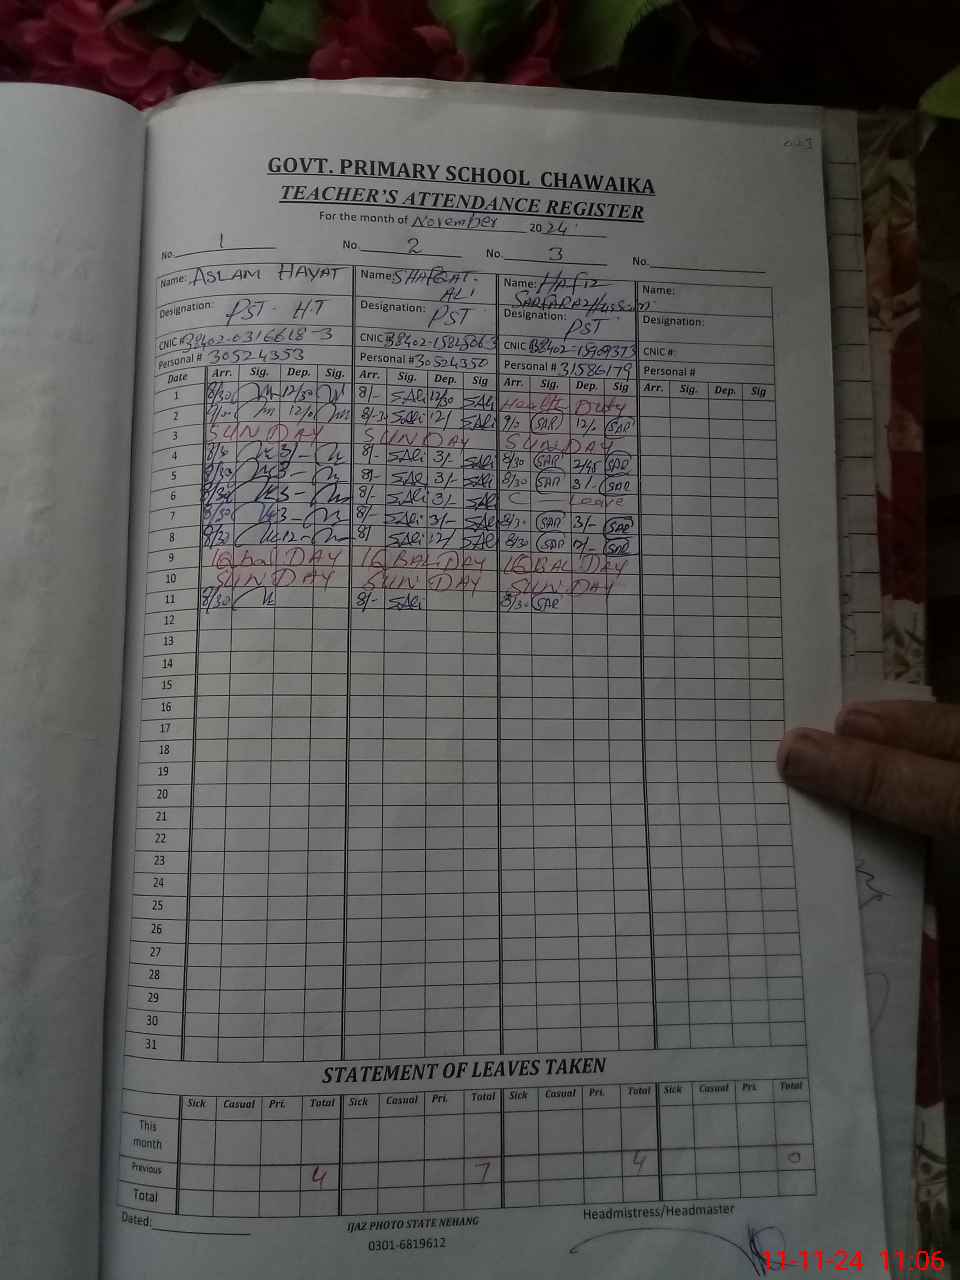 GOVT. PRIMARY SCHOOL CHAWAIKA
TEACHER'S ATTENDANCE REGISTER
For the month of November 2024
No. 1 No. 2 No. 3 No.
Name: ASLAM HAYAT Name: SHAFQAT ALI Name: HAFIZ Name:
Designation: PST. H.T Designation: PST Designation: PST Designation:
CNIC # 38402-0316618-3 CNIC CNIC CNIC #:
Personal # 30524353 Personal # 30524350 Personal # 31586179 Personal #
Date Arr. Sig. Dep. Sig. Arr. Sig. Dep. Sig Arr. Sig. Dep. Sig Arr. Sig. Dep. Sig
1 8/30 12/30 8/- SAli 12/30 SAli Health Duty
2 SAli 12/ SAli SAR SAR
3 SUNDAY SUNDAY SUNDAY
4 3/- 8/- SAli 3/- SAli 8/30 SAR 2/45 SAR
5 8/30 3- 8/- SAli 3/- SAli 8/30 SAR 3/- SAR
6 8/30 3- 8/- SAli 3/- SAli C - Leave
7 8/30 3- 8/- SAli 3/- SAli 8/30 SAR 3/- SAR
8 8/30 12- 8/ SAli 12/ SAli 8/30 SAR SAR
9 IQbal DAY IQBAL DAY IQBAL DAY
10 SUNDAY SUN DAY SUN DAY
11 8/30 8/- SAli 8/30 SAR
12
13
14
15
16
17
18
19
20
21
22
23
24
25
26
27
28
29
30
31
STATEMENT OF LEAVES TAKEN
Sick Casual Pri. Total Sick Casual Pri. Total Sick Casual Pri. Total Sick Casual Pri. Total
This month
Previous 4 7 4 0
Total
Dated: IJAZ PHOTO STATE NEHANG Headmistress/Headmaster
0301-6819612
11-11-24 11:06